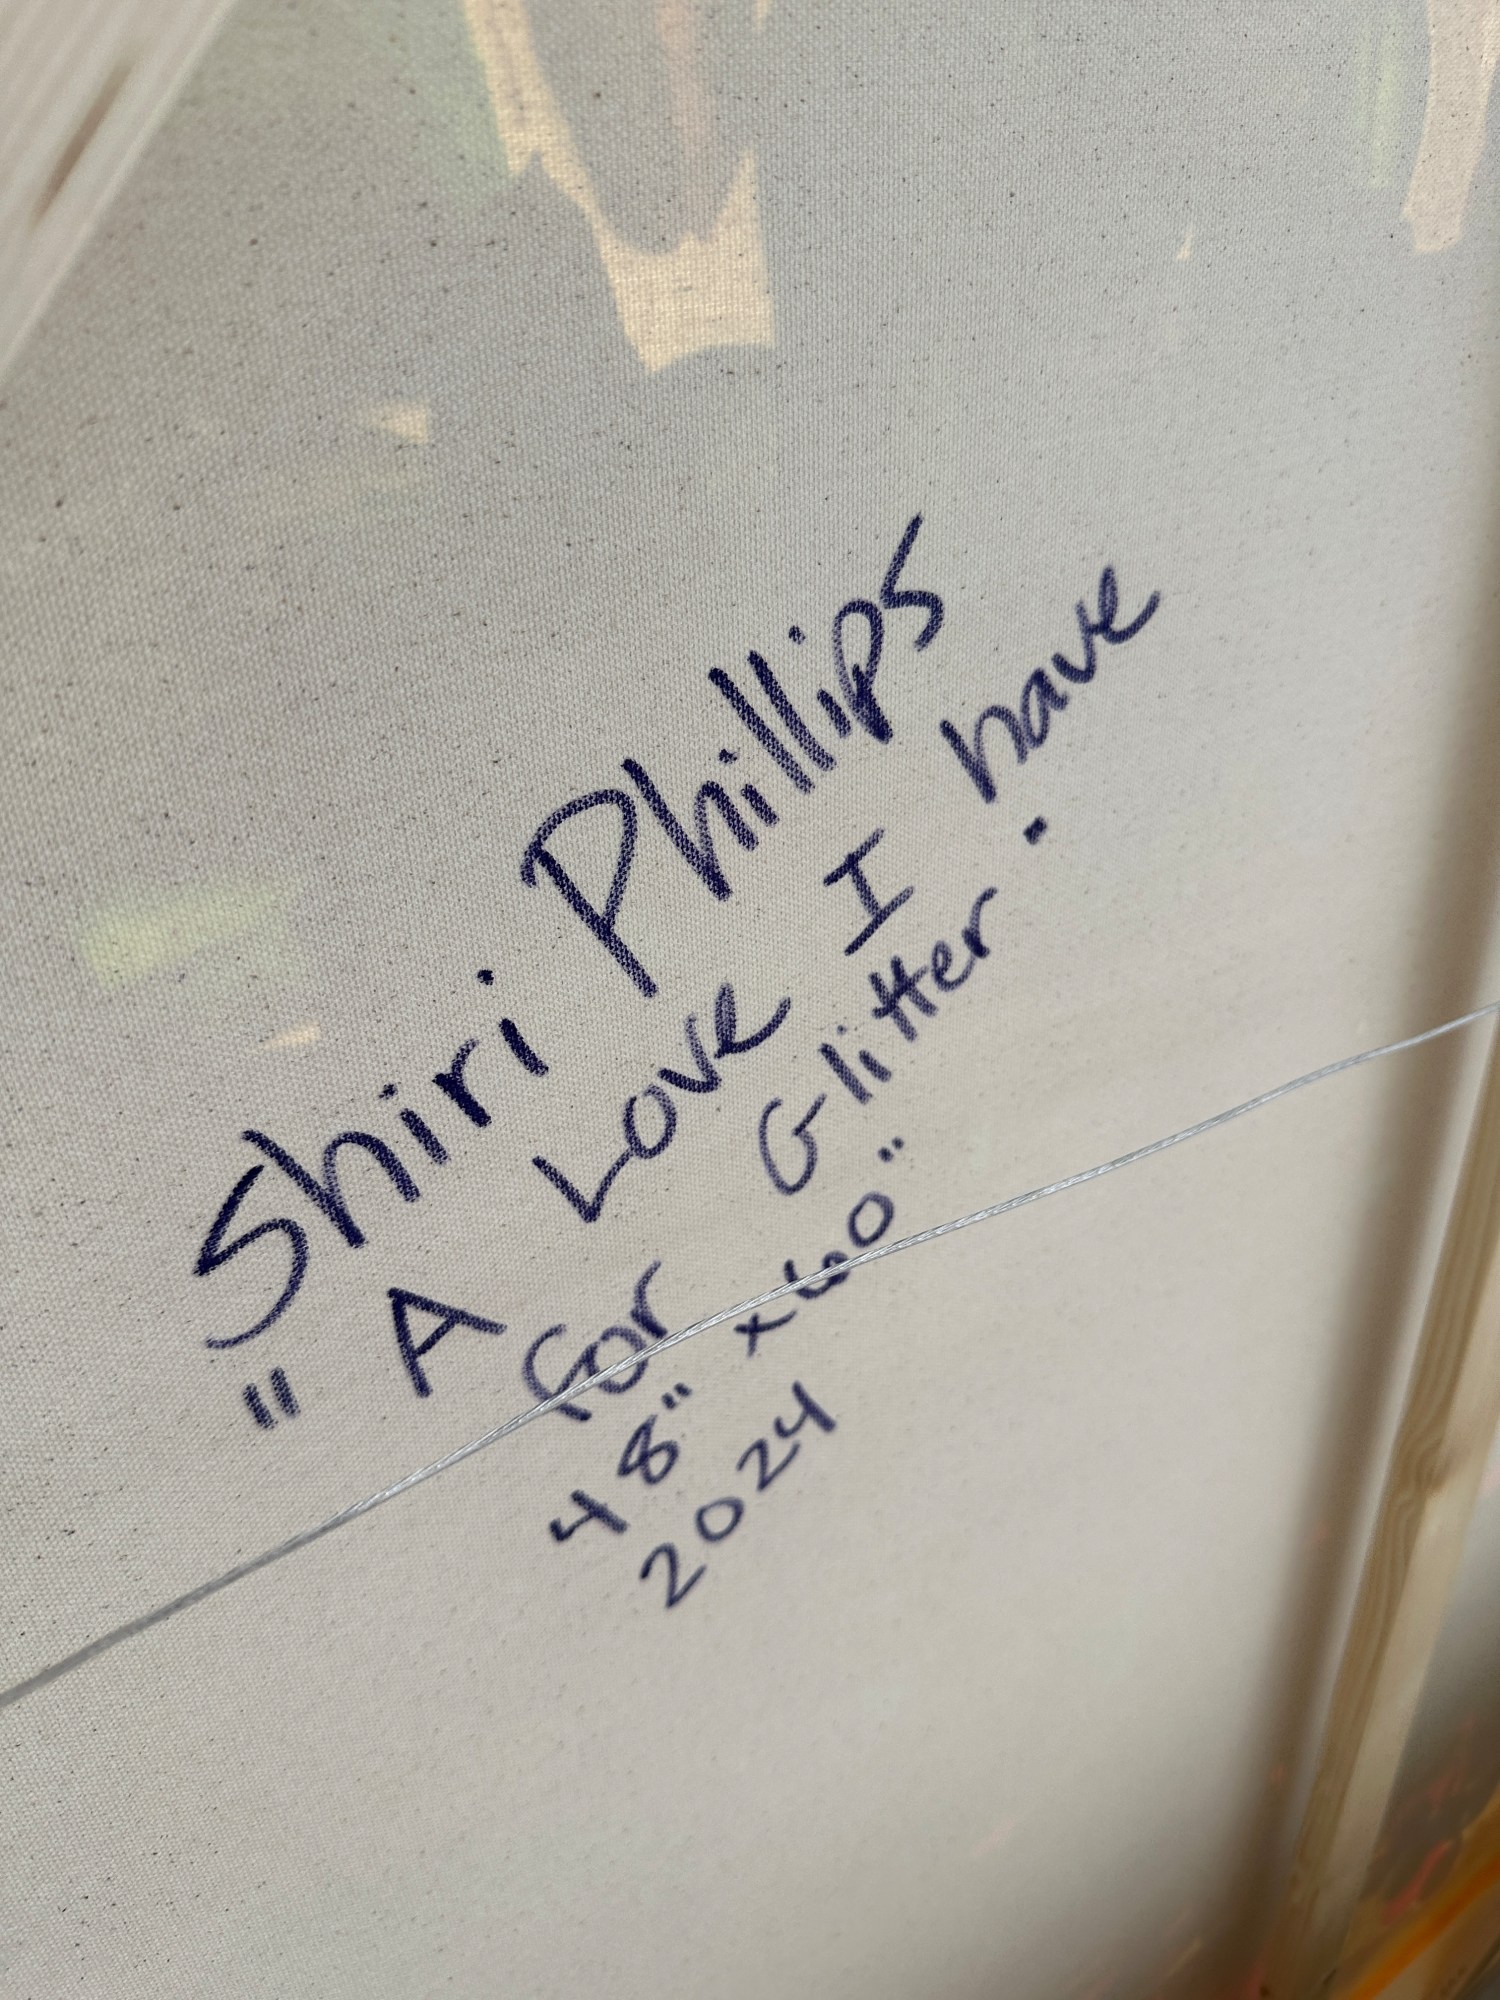 Shiri Phillips
"A Love I have
for Glitter.
48" x 60"
2024